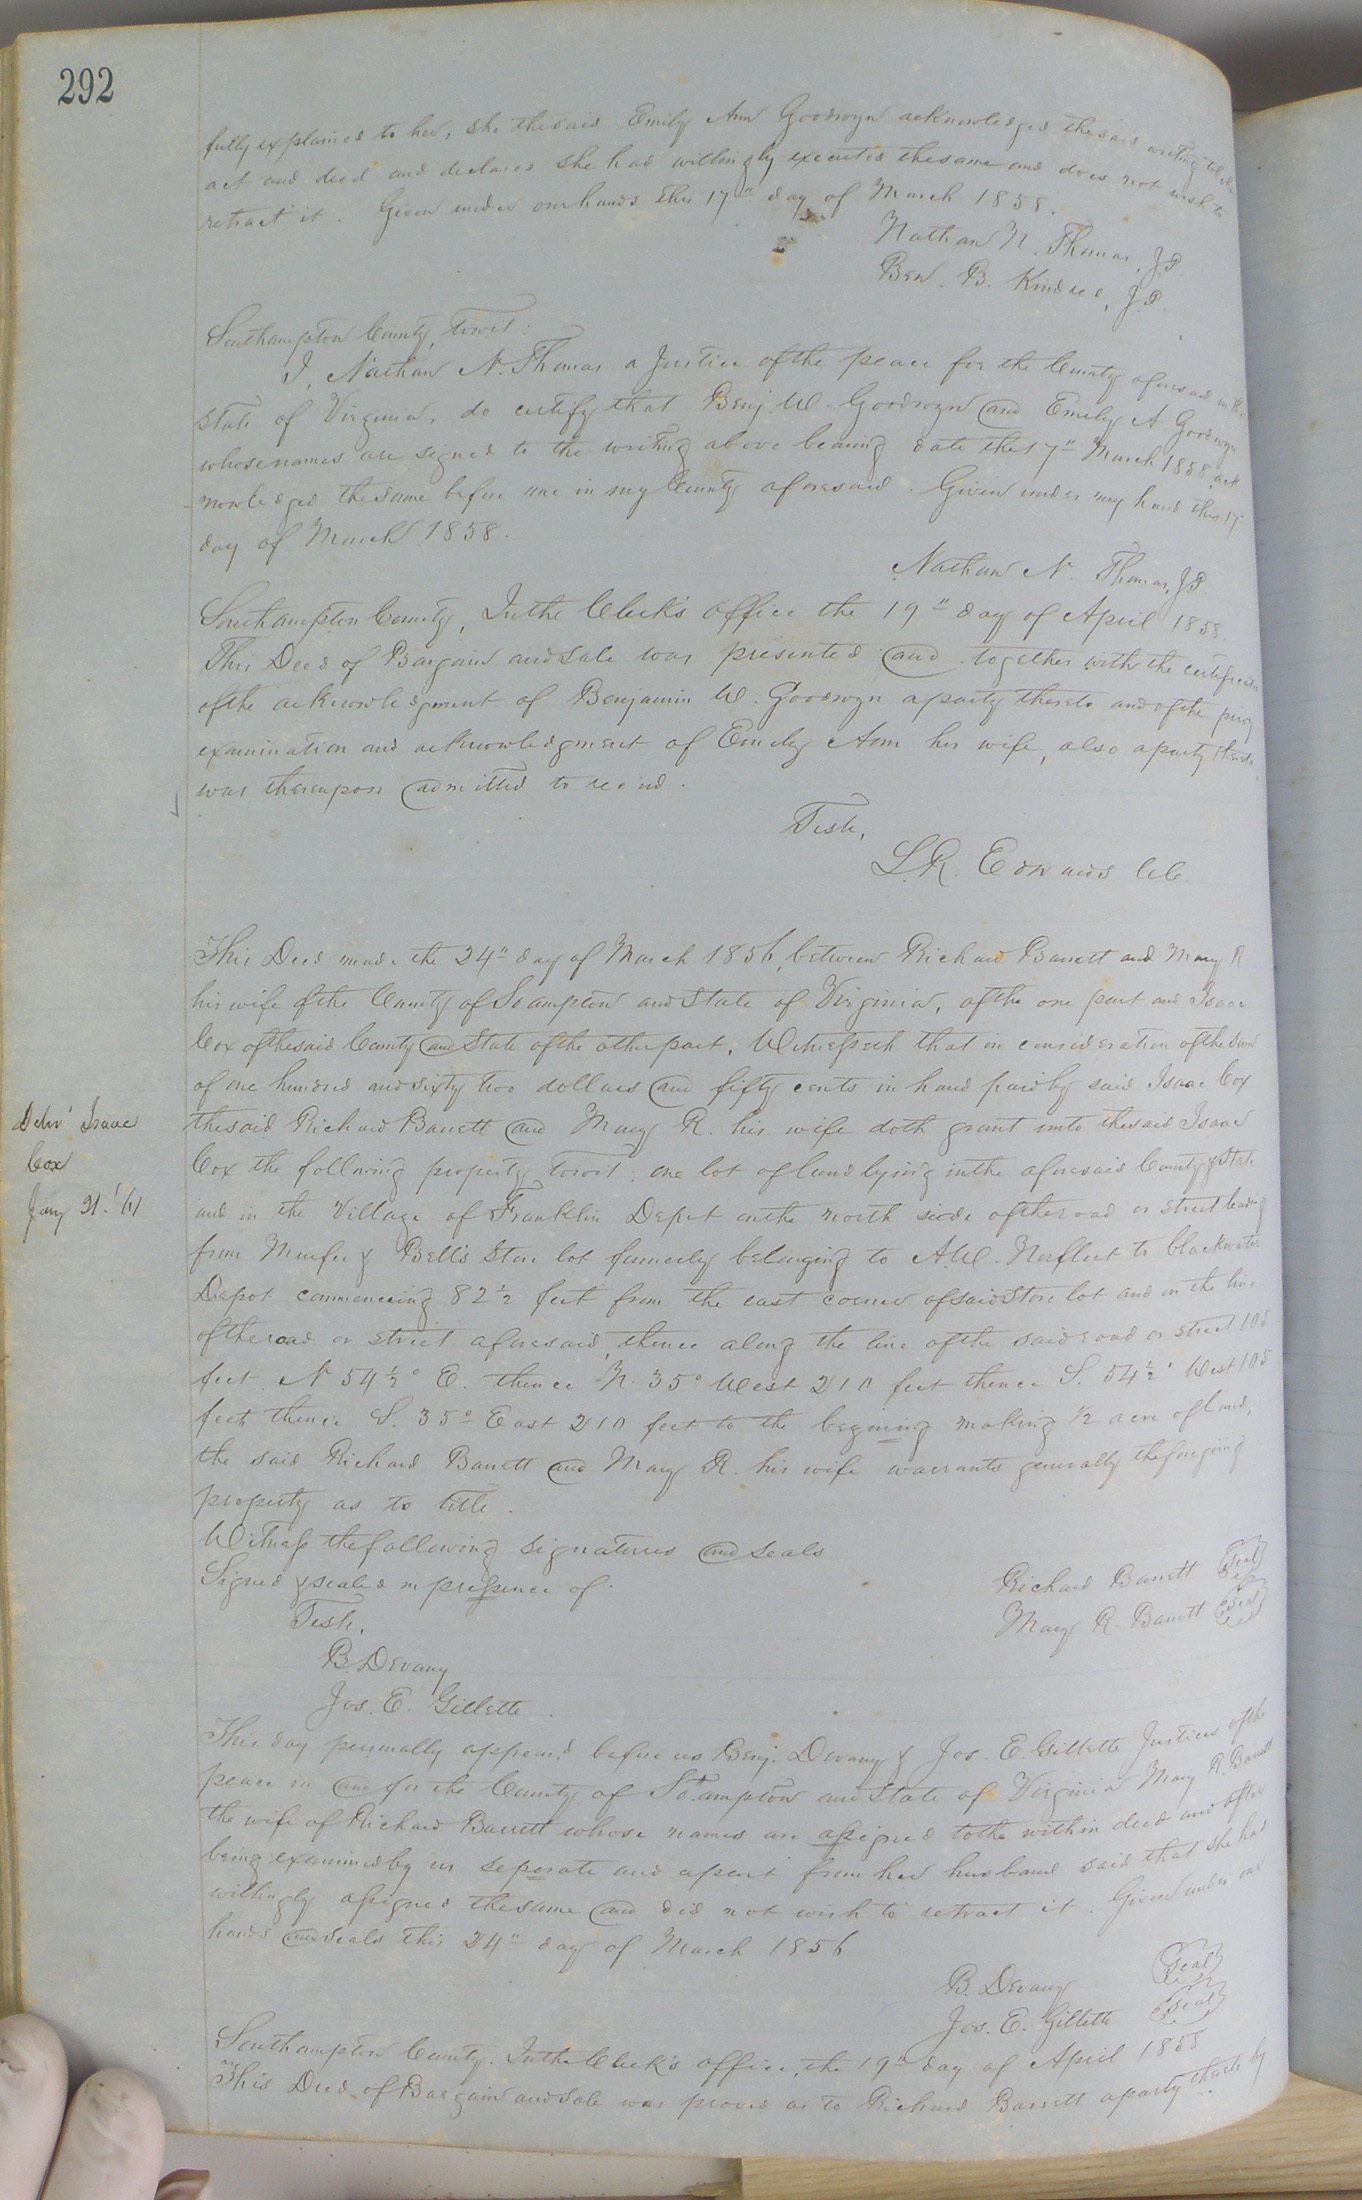 292
fully explained to her, she the said Emily Ann Goodwyn acknowledged the said writing to be her
act and deed and declared she had willingly executed the same and does not wish to
retract it. Given under our hands this 17" day of March 1858.
Nathan N. Thomas, J.P.
Ben. B. Kindred, J.P.
Southampton County, towit:
I, Nathan N. Thomas a Justice of the peace for the County aforesaid in the
state of Virginia, do certify that Benj. W. Goodwyn and Emily A. Goodwyn
whose names are signed to the writing above bearing date the 17" March 1858, ack
nowledged the same before me in my County aforesaid. Given under my hand this 17"
day of March 1858.
Nathan N. Thomas, J.P.
Southampton County, In the Clerk's office the 19" day of April 1858
This Deed of Bargain and sale was presented and together with the certificate
of the acknowledgment of Benjamin W. Goodwyn a party thereto and of the privy
examination and acknowledgment of Emily Ann his wife, also a party thereto,
was thereupon admitted to record.
Teste,
L.R. Edwards C.C.
This Deed made the 24" day of March 1856, between Richard Barrett and Mary R
his wife of the County of So ampton and State of Virginia, of the one part and Isaac
Cox of the said County and State of the other part, Witnesseth that in consideration of the sum
of one hundred and sixty two dollars and fifty cents in hand paid by said Isaac Cox
the said Richard Barrett and Mary R. his wife doth grant unto the said Isaac
Cox the following property towit: one lot of land lying in the aforesaid County & State
and in the Village of Franklin Depot on the north side of the road or street leading
from Murfee & Bell's Store lot formerly belonging to A.W. Norfleet to blackwater
Depot commencing 82 1/2 feet from the east corner of said Store lot and on the line
of the road or street aforesaid, thence along the line of the said road or street 105
feet N 54 1/2° E. thence N. 35° West 210 feet thence S. 54 1/2° West 105
feet thence S. 35° East 210 feet to the begining making 1/2 acre of land,
the said Richard Barrett and Mary R. his wife warrants generally the forgoing
property as to title.
Witness the following signatures and seals
Signed & sealed in presence of.
Richard Barrett Seal
Mary R. Barrett Seal
Teste,
B. Devany
Jos. E. Gillette
Delv'd Isaac
Cox
Jany 31. '61
This day personally appeard before us Benj. Devany & Jos. E. Gillette Justices of the
peace in and for the County of So.ampton and State of Virginia Mary R. Barrett
the wife of Richard Barrett whose names are assigned to the within deed and after
being examined by us seperate and apart from her husband said that she had
willingly assigned the same and did not wish to retract it. Given under our
hands and seals this 24" day of March 1856
B. Devany Seal
Jos. E. Gillette Seal
Southampton County. In the Clerk's office, the 19" day of April 1858
This Deed of Bargain and sale was proved as to Richard Barrett a party thereto by